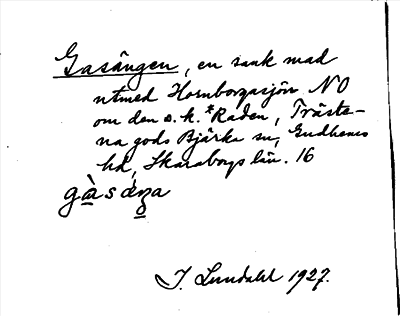 Gasängen, en sank mad
utmed Hornborgasjön NO
om den s.k. *Raden, Träste-
na gods Bjärka sn, Gudhems
hd, Skaraborgs län. 16
gàsáŋa
I. Lundahl 1927.